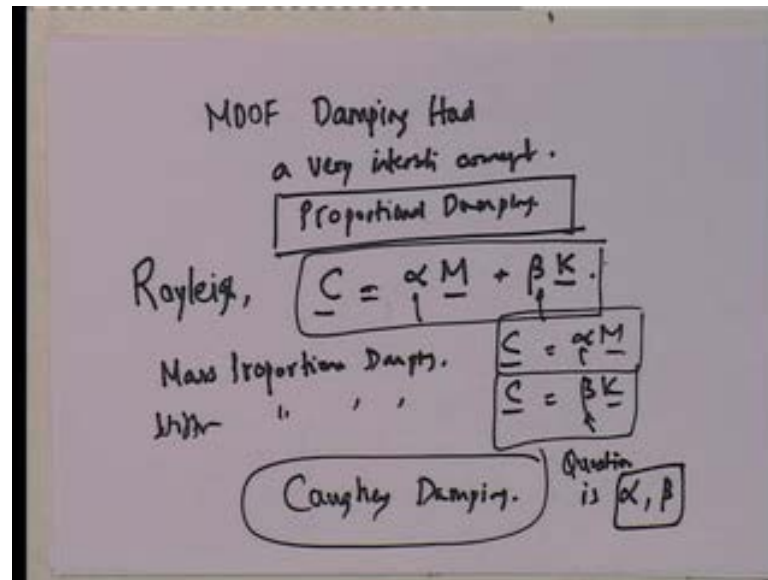 MDOF Damping Had
a very intersti concept.
Proportional Damping
Rayleigh, C = α M + β K.
Mass Proportion Dampg. C = α M
Stiffn " , , C = β K
Caughey Damping. Question
is α, β